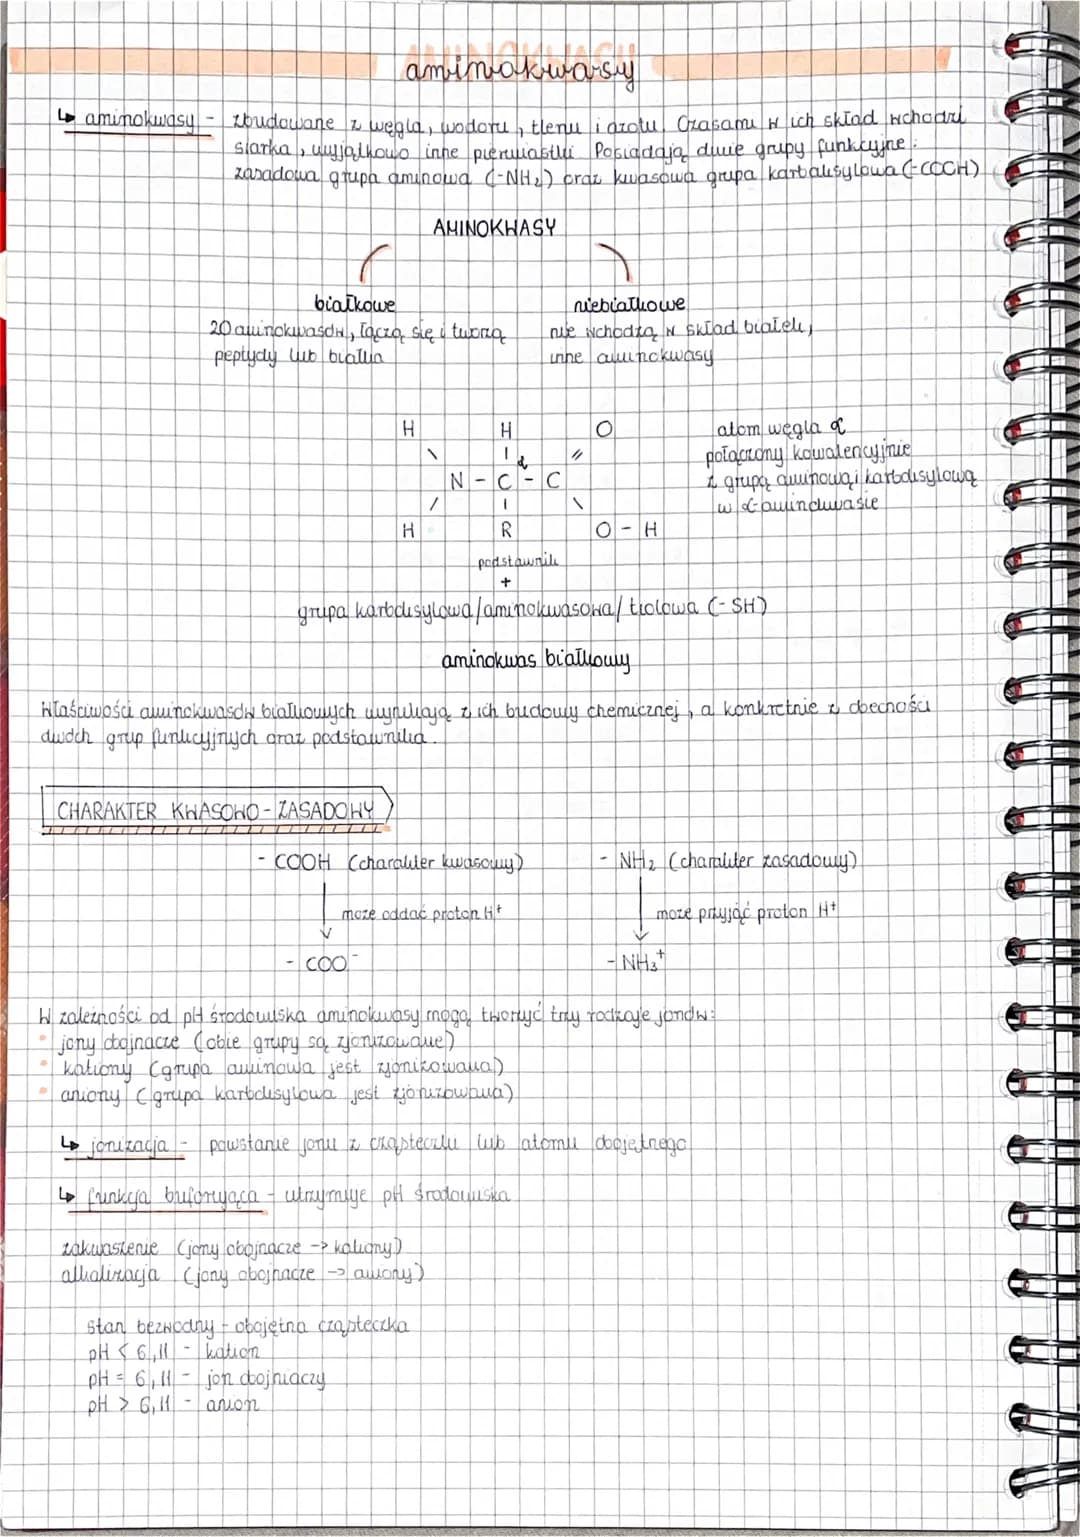 aminokwasy
↳ aminokwasy - zbudowane z węgla, wodoru, tlenu i azotu. Czasami w ich skład wchodzi
siarka, wyjątkowo inne pierwiastki. Posiadają dwie grupy funkcyjne:
zasadowa grupa aminowa (-NH₂) oraz kwasowa grupa karboksylowa (-COOH)
AMINOKWASY
białkowe niebiałkowe
20 aminokwasów, łączą się i tworzą nie wchodzą w skład białek,
peptydy lub białka inne aminokwasy
H H O atom węgla α
\ | α // połączony kowalencyjnie
N - C - C z grupą aminową i karboksylową
/ | \ w α-aminokwasie
H R O - H
podstawnik
+
grupa karboksylowa/aminokwasowa/tiolowa (-SH)
aminokwas białkowy
Właściwości aminokwasów białkowych wynikają z ich budowy chemicznej, a konkretnie z obecności
dwóch grup funkcyjnych oraz podstawnika.
CHARAKTER KWASOWO-ZASADOWY
- COOH (charakter kwasowy) - NH₂ (charakter zasadowy)
↓ może oddać proton H⁺ ↓ może przyjąć proton H⁺
- COO⁻ - NH₃⁺
W zależności od pH środowiska aminokwasy mogą tworzyć trzy rodzaje jonów:
• jony obojnacze (obie grupy są zjonizowane)
• kationy (grupa aminowa jest zjonizowana)
• aniony (grupa karboksylowa jest zjonizowana)
↳ jonizacja - powstanie jonu z cząsteczki lub atomu obojętnego
↳ funkcja buforująca - utrzymuje pH środowiska
zakwaszenie (jony obojnacze -> kationy)
alkalizacja (jony obojnacze -> aniony)
stan bezwodny - obojętna cząsteczka
pH < 6,11 - kation
pH = 6,11 - jon obojniaczy
pH > 6,11 - anion